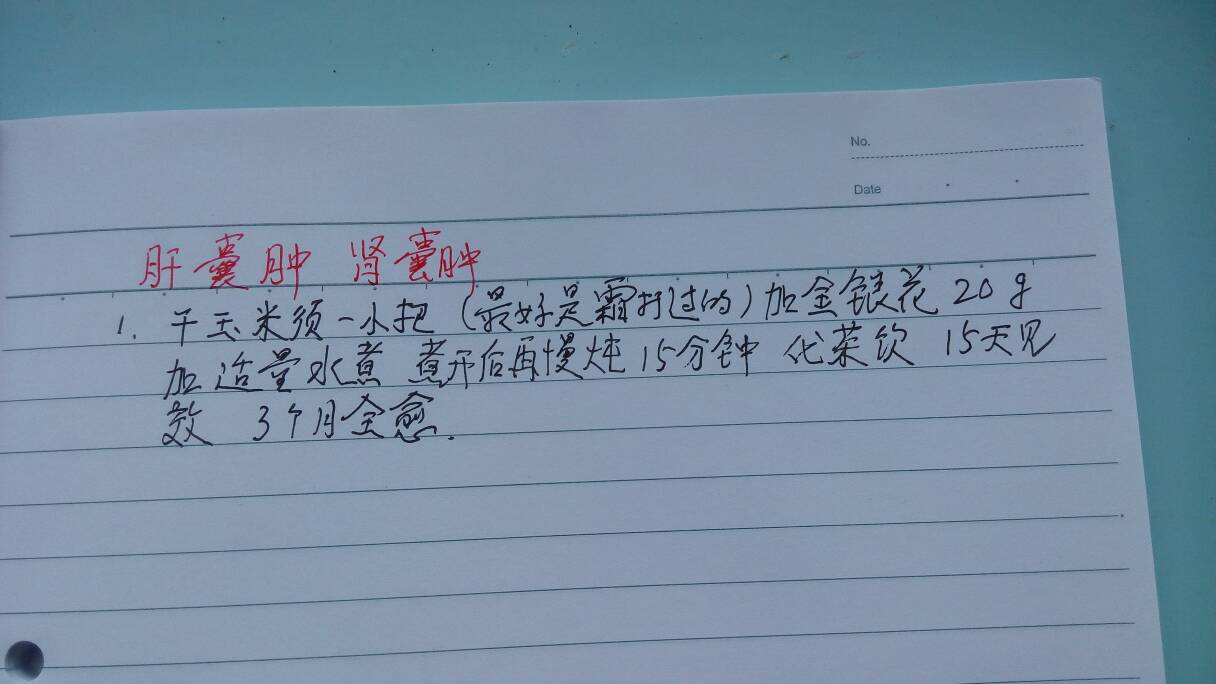 No.
Date
肝囊肿 肾囊肿
1. 干玉米须一小把（最好是霜打过的）加金银花 20g
加适量水煮 煮开后再慢炖 15分钟 代茶饮 15天见
效 3个月全愈.